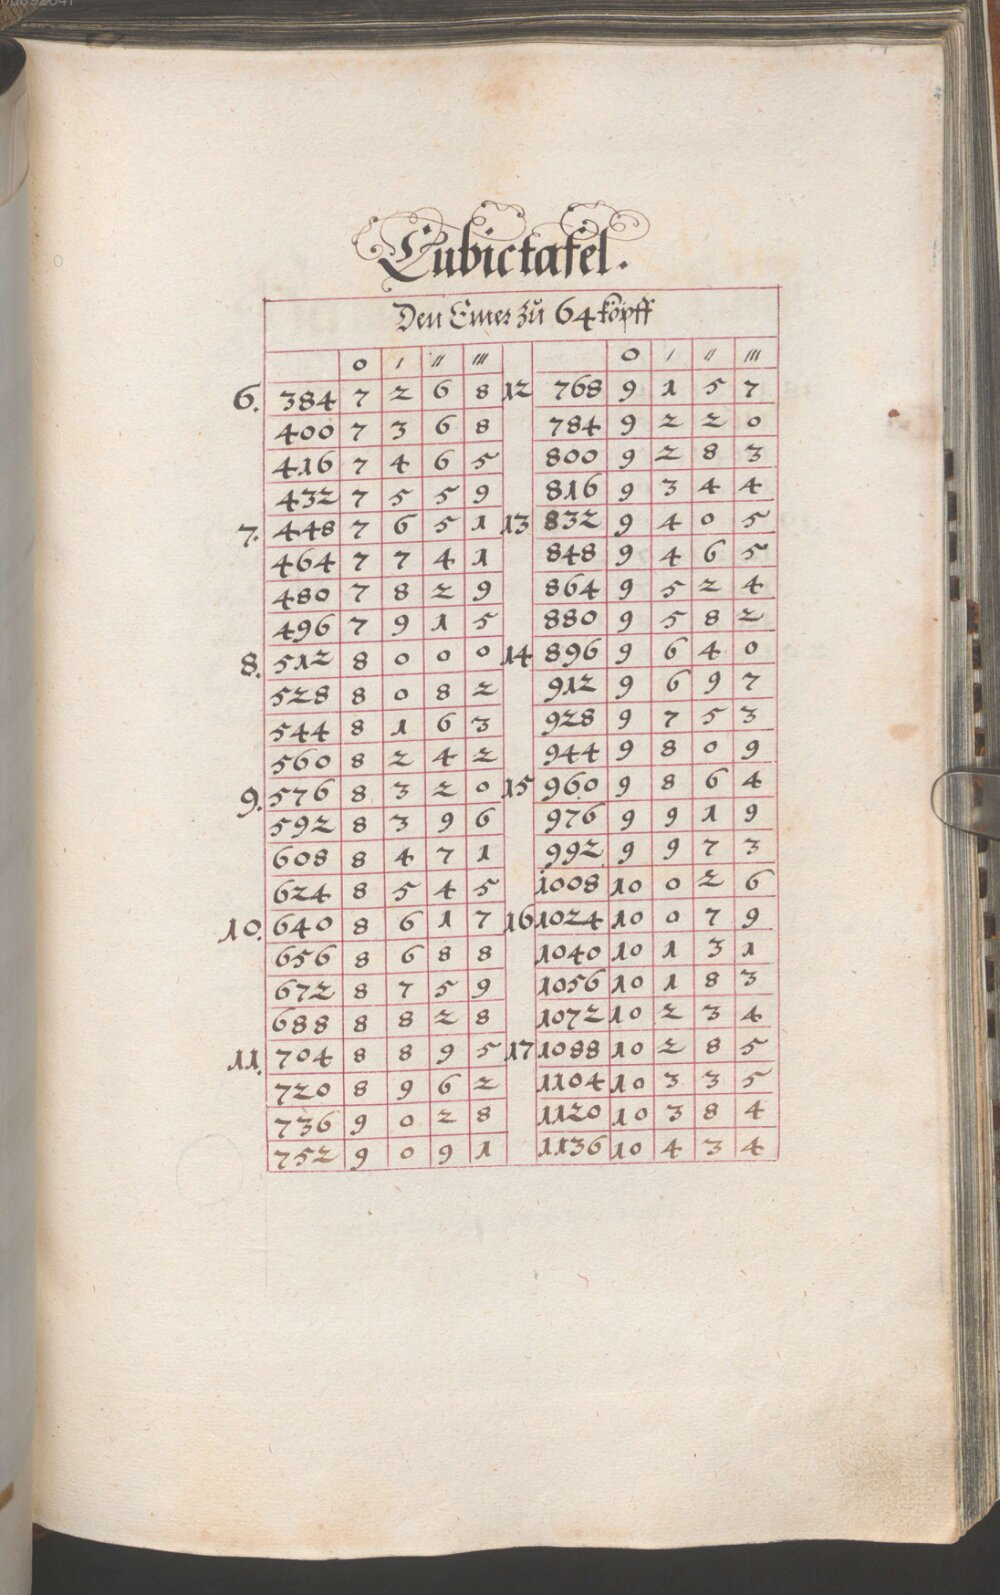 Cubictafel.
Den Emer zu 64 köpff
0 / // /// 0 / // ///
6. 384 7 2 6 8 12 768 9 1 5 7
400 7 3 6 8 784 9 2 2 0
416 7 4 6 5 800 9 2 8 3
432 7 5 5 9 816 9 3 4 4
7. 448 7 6 5 1 13 832 9 4 0 5
464 7 7 4 1 848 9 4 6 5
480 7 8 2 9 864 9 5 2 4
496 7 9 1 5 880 9 5 8 2
8. 512 8 0 0 0 14 896 9 6 4 0
528 8 0 8 2 912 9 6 9 7
544 8 1 6 3 928 9 7 5 3
560 8 2 4 2 944 9 8 0 9
9. 576 8 3 2 0 15 960 9 8 6 4
592 8 3 9 6 976 9 9 1 9
608 8 4 7 1 992 9 9 7 3
624 8 5 4 5 1008 10 0 2 6
10. 640 8 6 1 7 16 1024 10 0 7 9
656 8 6 8 8 1040 10 1 3 1
672 8 7 5 9 1056 10 1 8 3
688 8 8 2 8 1072 10 2 3 4
11. 704 8 8 9 5 17 1088 10 2 8 5
720 8 9 6 2 1104 10 3 3 5
736 9 0 2 8 1120 10 3 8 4
752 9 0 9 1 1136 10 4 3 4